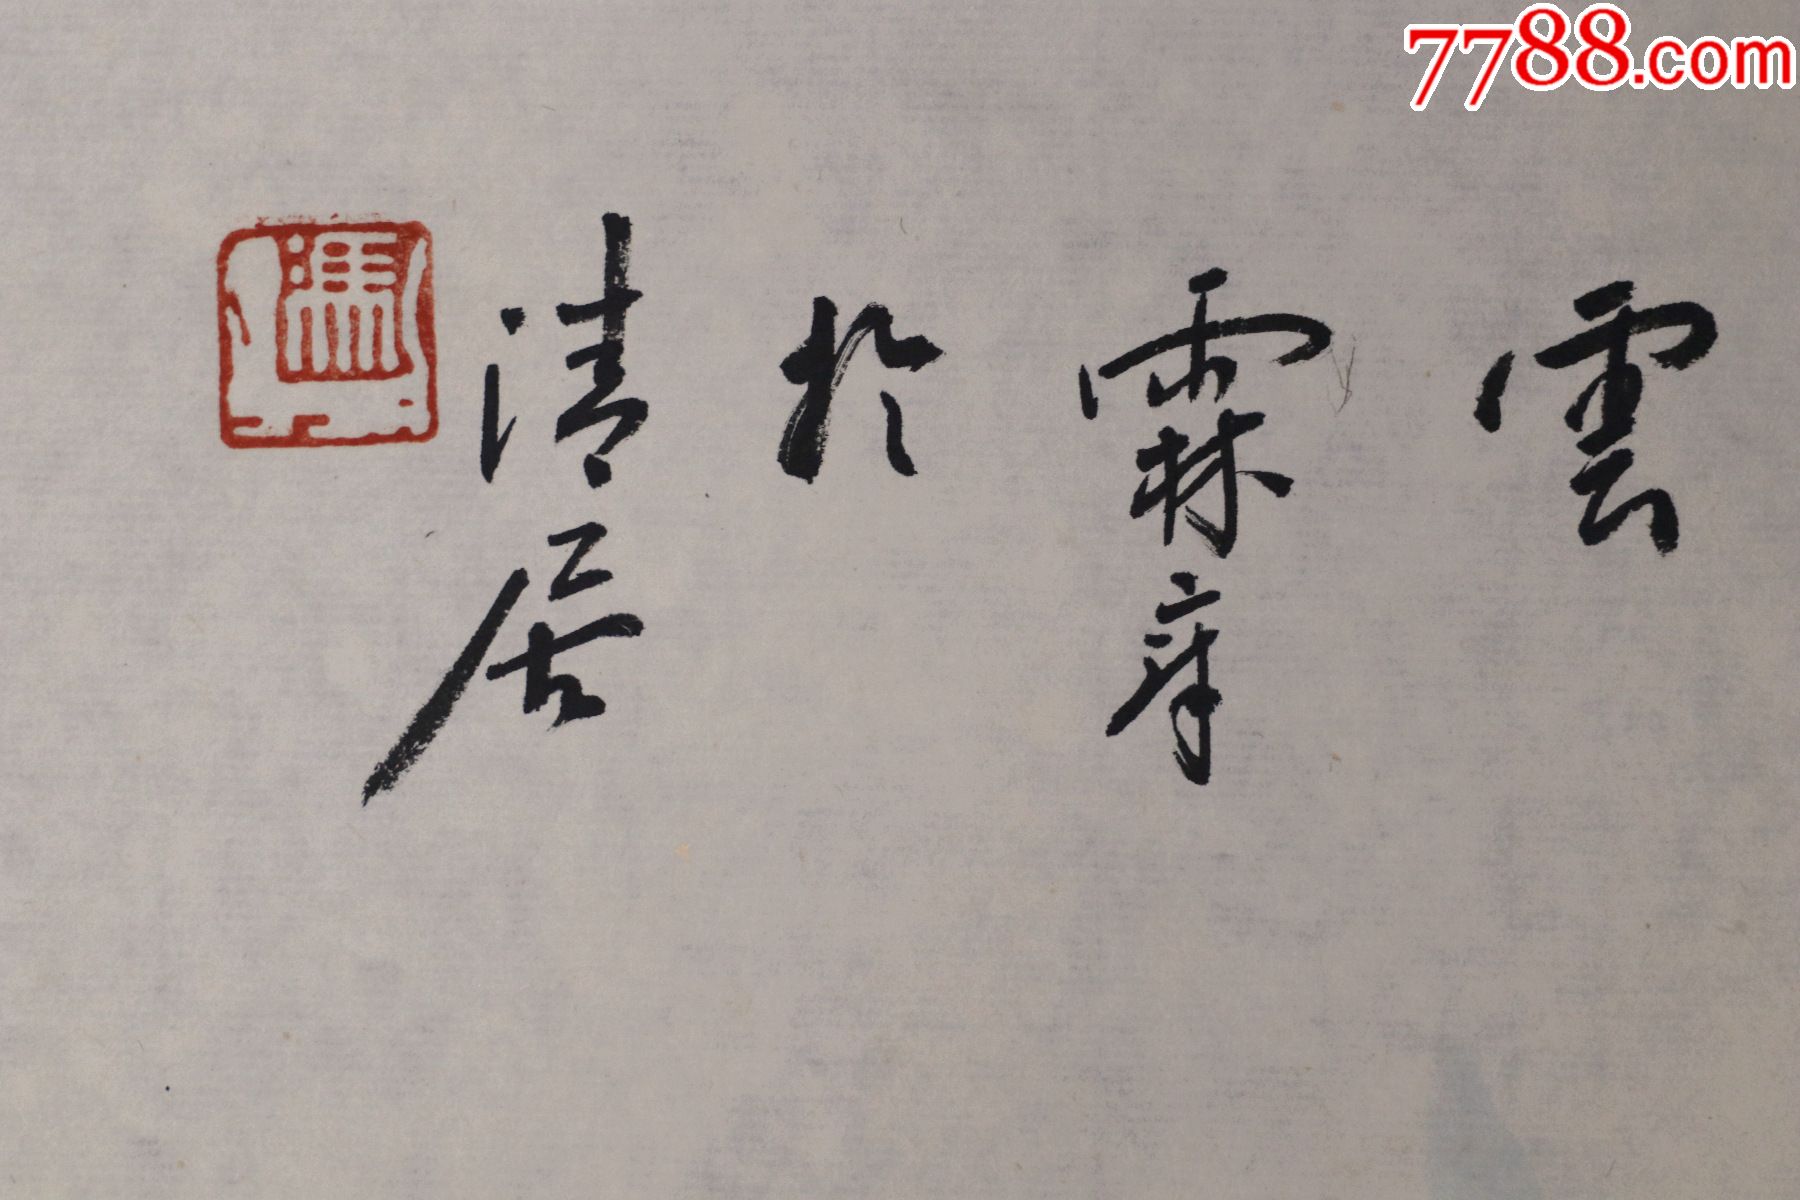 7788.com
雲
霖章
於
清居
馮